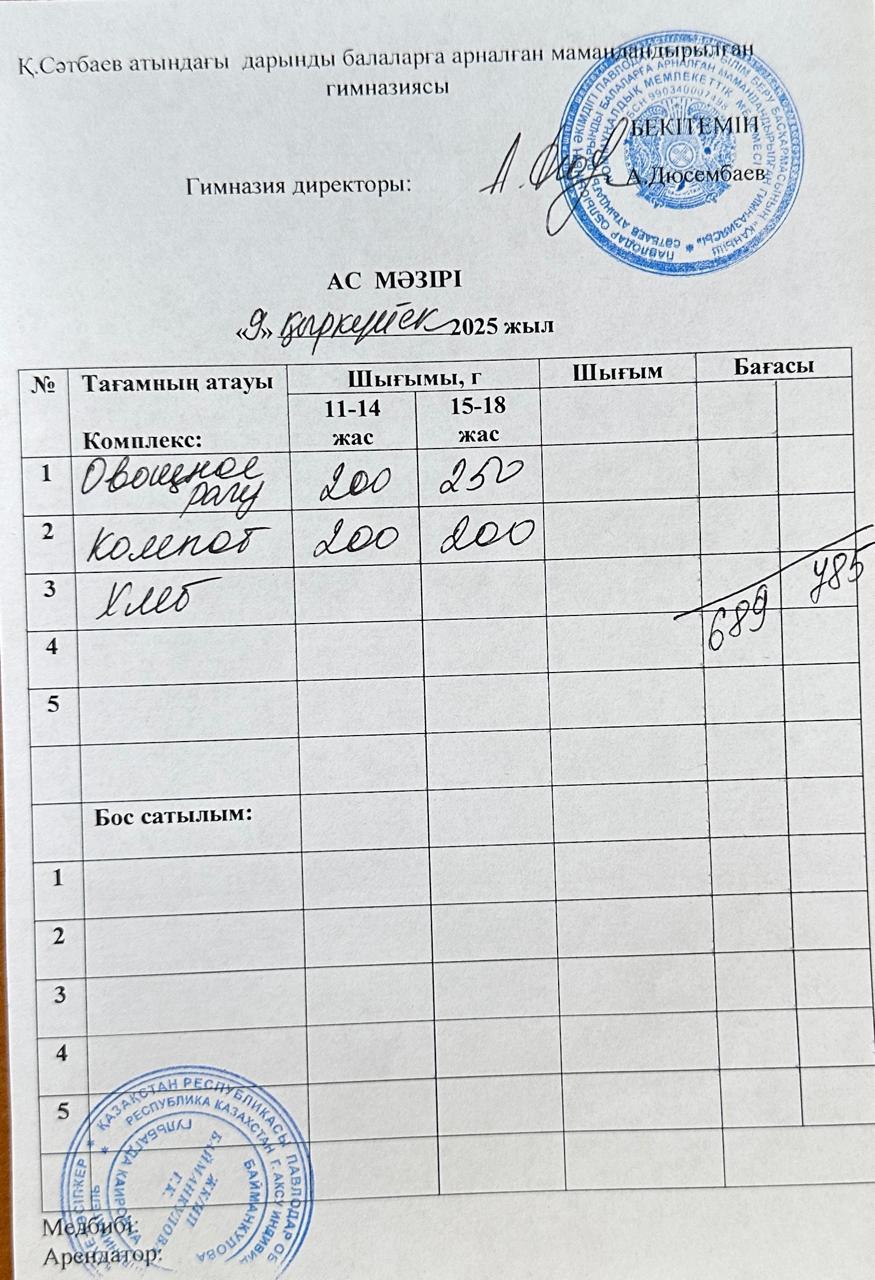 Қ.Сәтбаев атындағы дарынды балаларға арналған мамандандырылған
гимназиясы
БЕКІТЕМІН
Гимназия директоры: А.Дюсембаев
АС МӘЗІРІ
«9» қыркүйек 2025 жыл
№ Тағамның атауы Шығымы, г Шығым Бағасы
Комплекс: 11-14 жас 15-18 жас
1 Овощное рагу 200 250
2 Компот 200 200
3 Хлеб
689 785
4
5
Бос сатылым:
1
2
3
4
5
ҚАЗАҚСТАН РЕСПУБЛИКАСЫ ПАВЛОДАР
РЕСПУБЛИКА КАЗАХСТАН Г.АКСУ
БАЙМАНКУЛОВА
ГУЛЬБАГДА КАИРОВНА
Медбибі:
Арендатор: